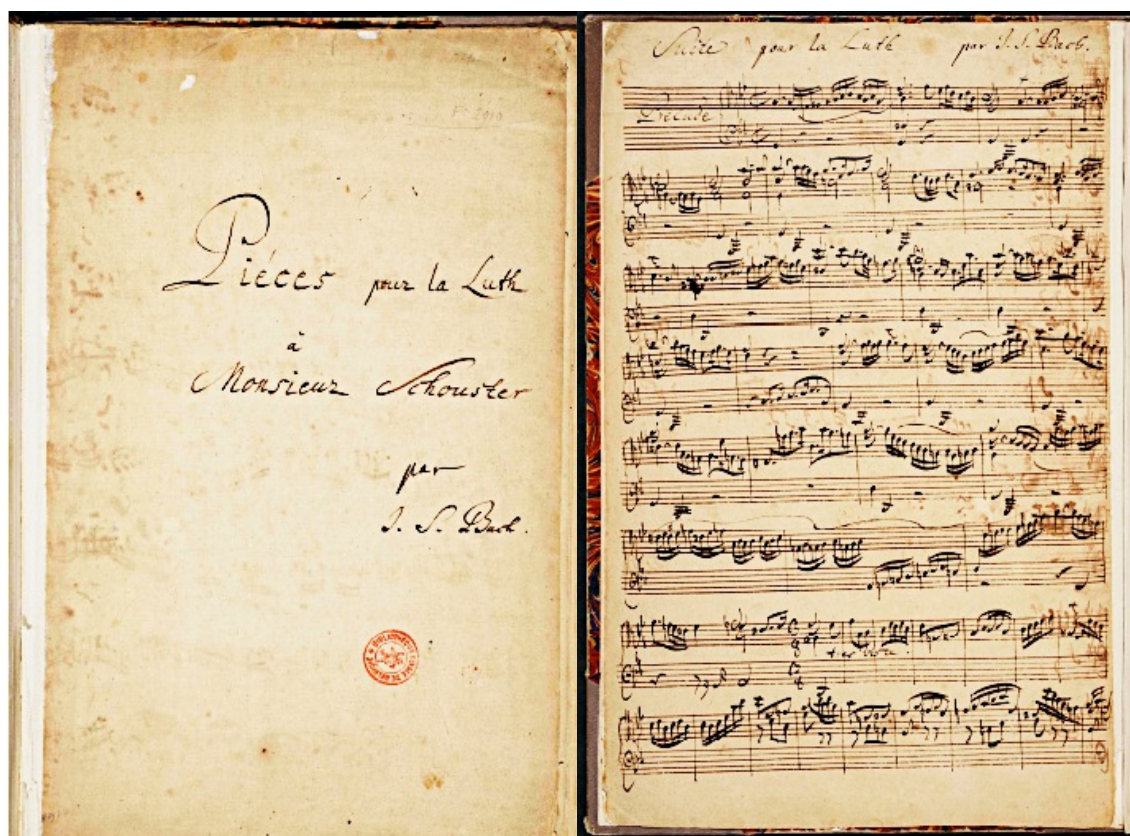 Piéces pour la Luth
à
Monsieur Schouster
par
J. S. Bach.
Suite pour la Luth par J. S. Bach.
Prelude